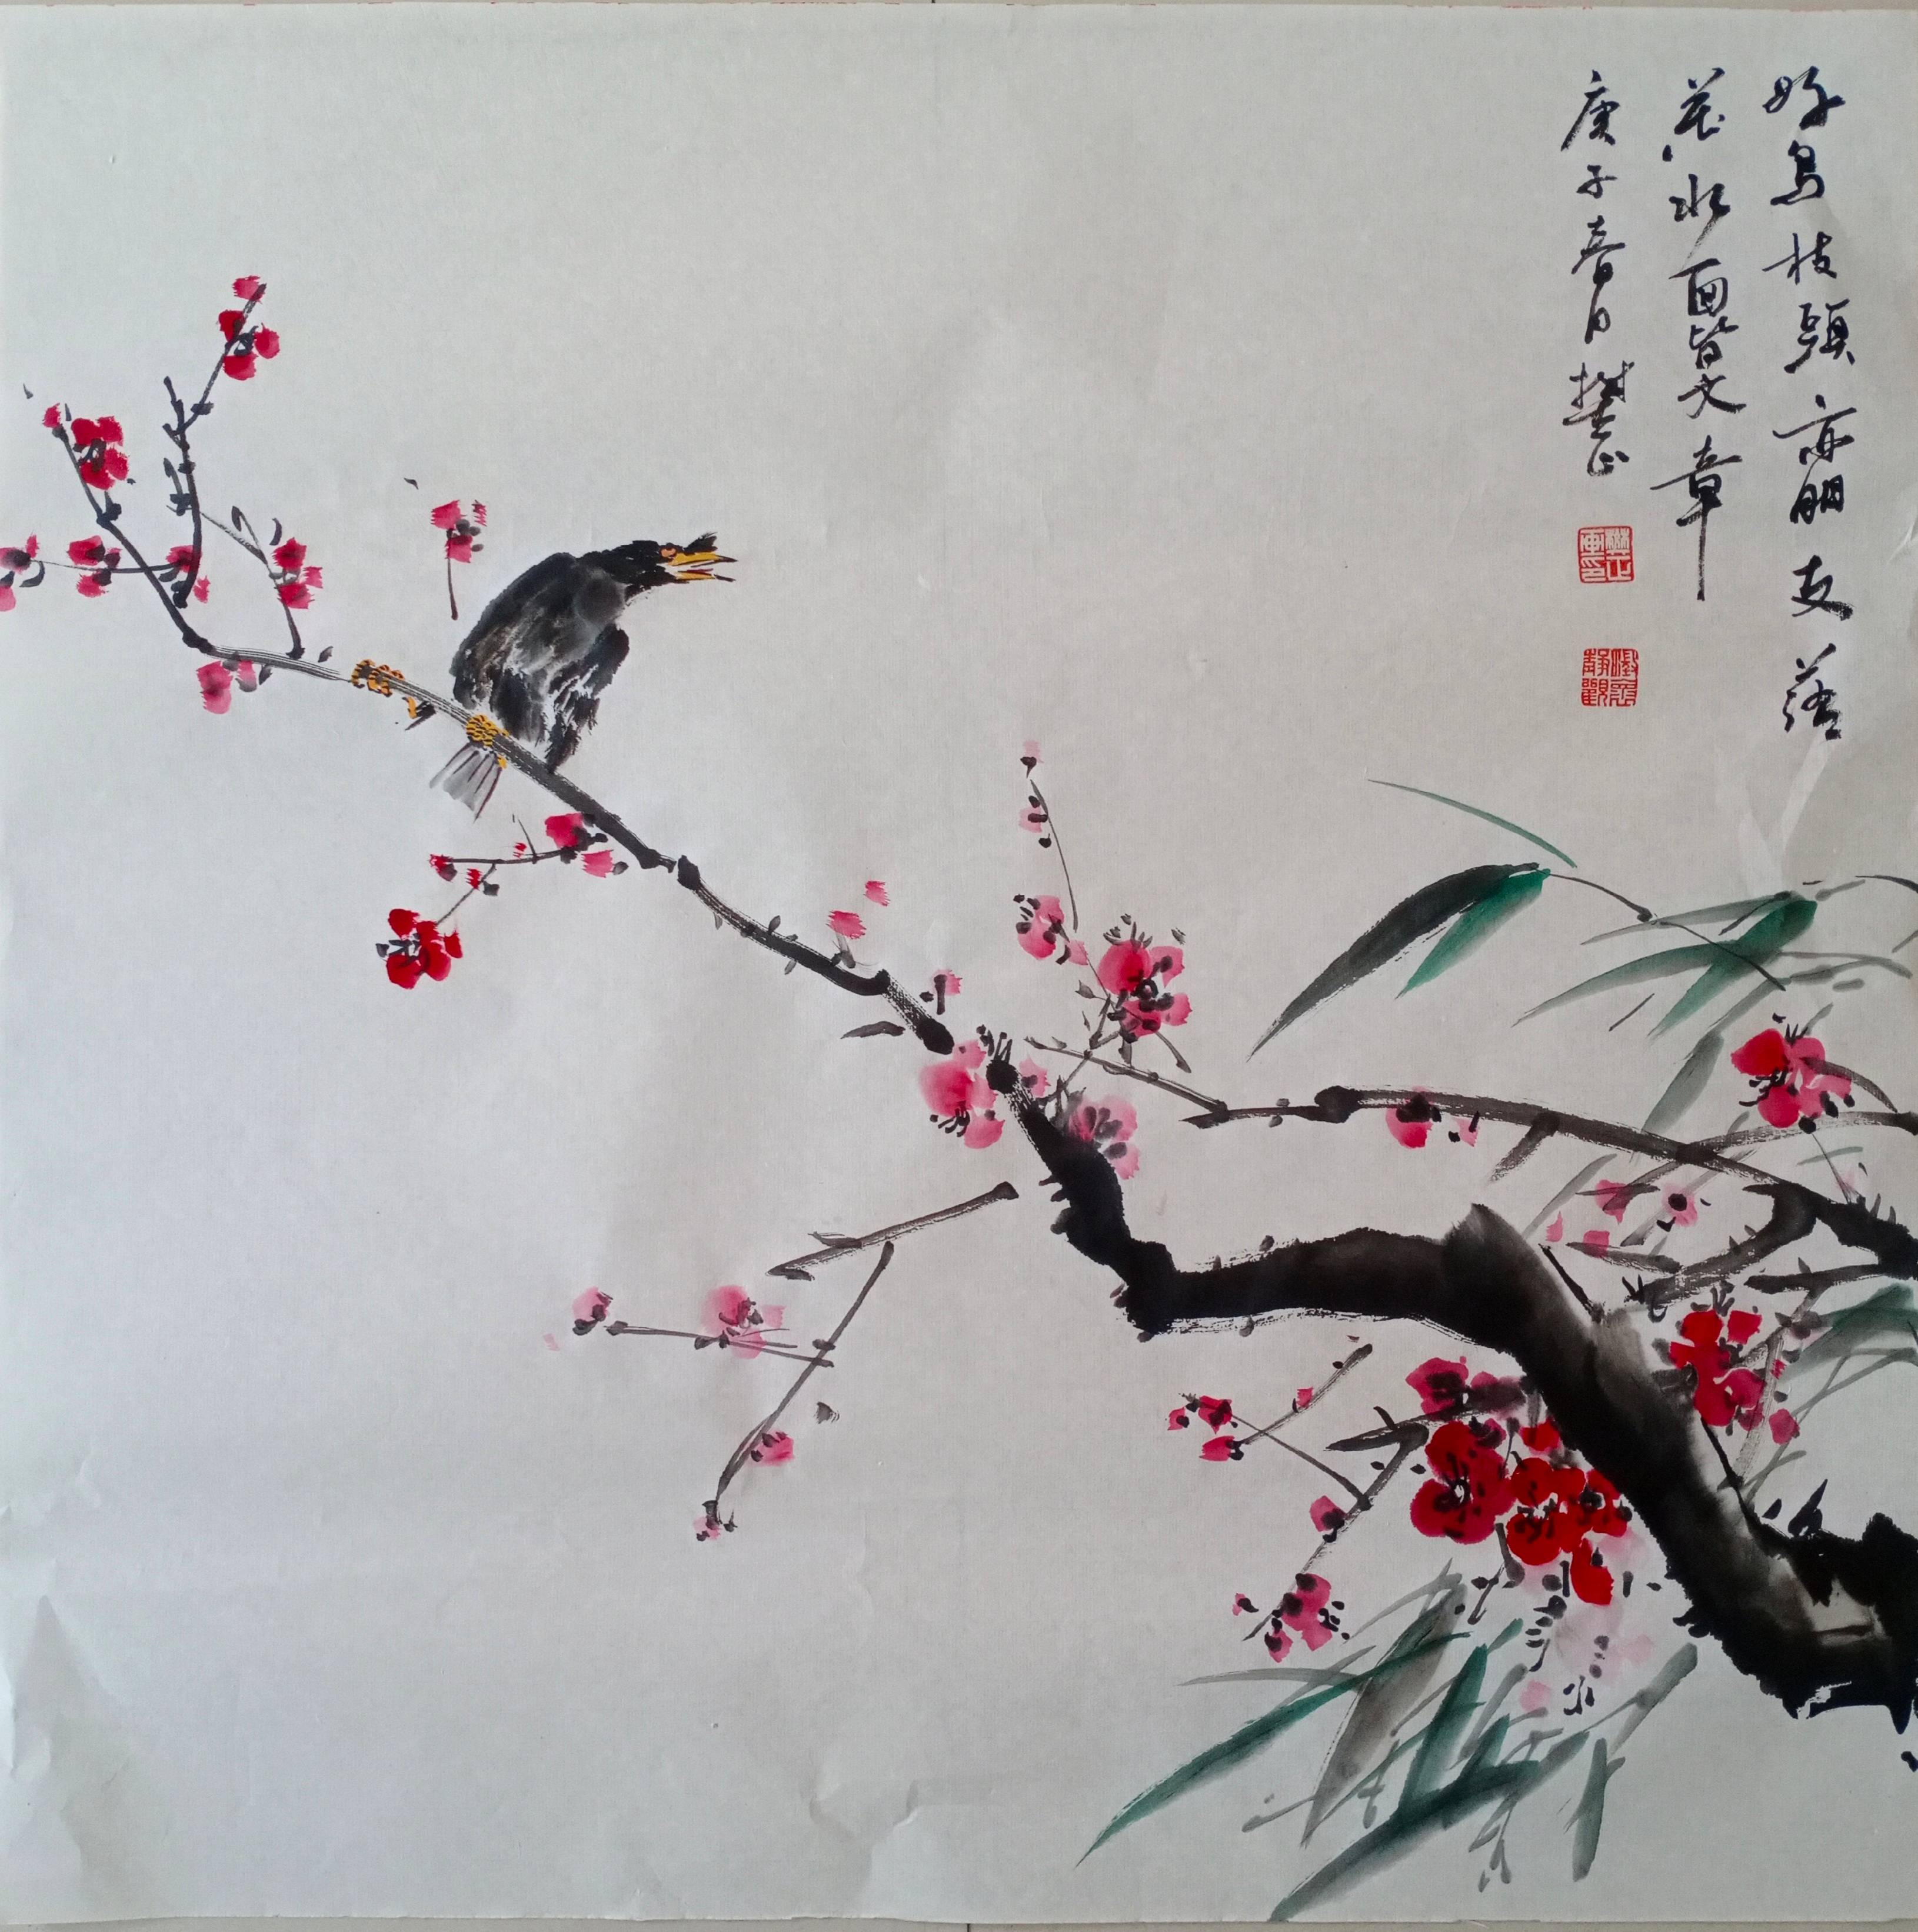 好鳥枝頭亦朋友落
花水面皆文章
庚子春月樊正